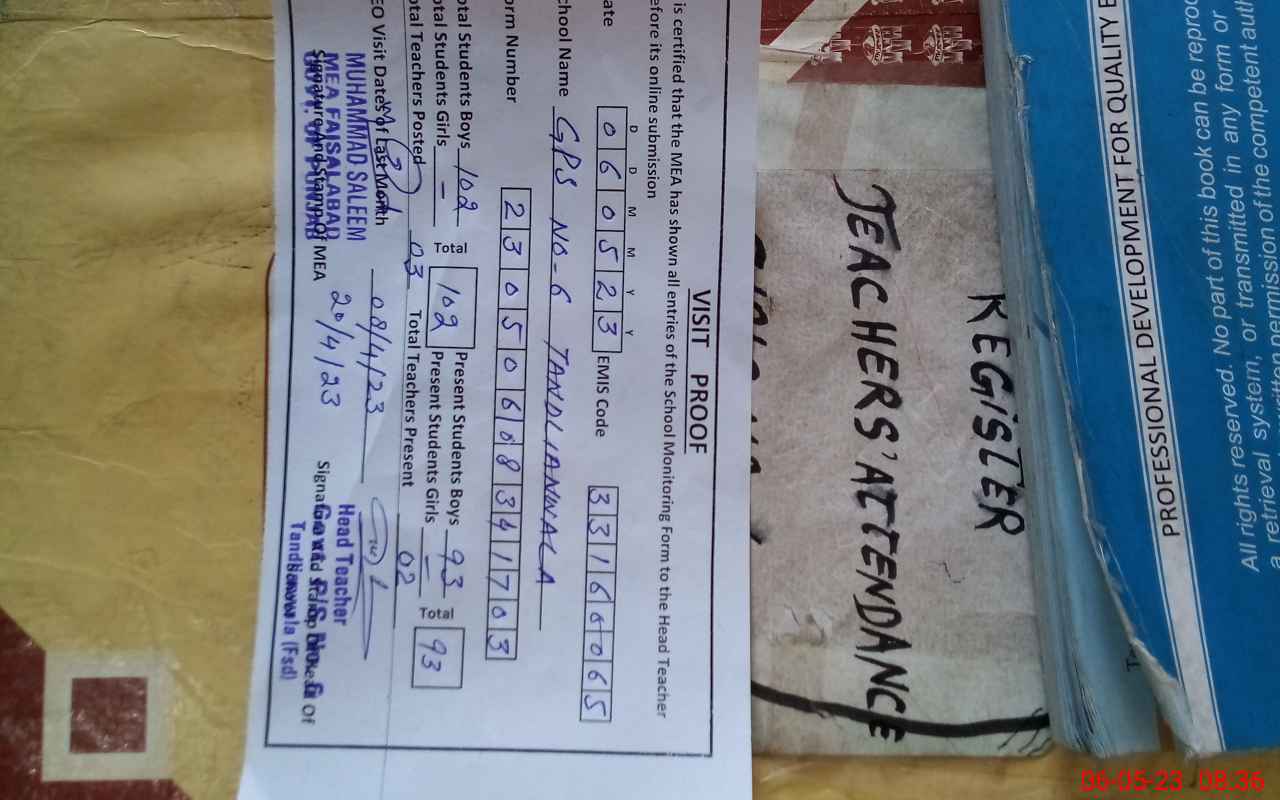 VISIT PROOF
is certified that the MEA has shown all entries of the School Monitoring Form to the Head Teacher
efore its online submission
D D M M Y Y
ate 0 6 0 5 2 3 EMIS Code 3 3 1 6 0 0 6 5
chool Name GPS NO-6 TANDLIANWALA
orm Number 2 3 0 5 0 6 0 8 3 4 1 7 0 3
otal Students Boys 102 Total 102 Present Students Boys 93 Total 93
otal Students Girls - Present Students Girls -
otal Teachers Posted 03 Total Teachers Present 02
EO Visit Dates of Last Month 08/4/23
MUHAMMAD SALEEM
MEA FAISALABAD
GOVT. OF PUNJAB
Signature And Stamp Of MEA
20/4/23
Head Teacher
Govt. P/S No. 6
Tandlianwala (Fsd)
TEACHERS' ATTENDANCE
REGISTER
PROFESSIONAL DEVELOPMENT FOR QUALITY E
All rights reserved. No part of this book can be reproc
a retrieval system, or transmitted in any form or
written permission of the competent auth
06-05-23 08:36